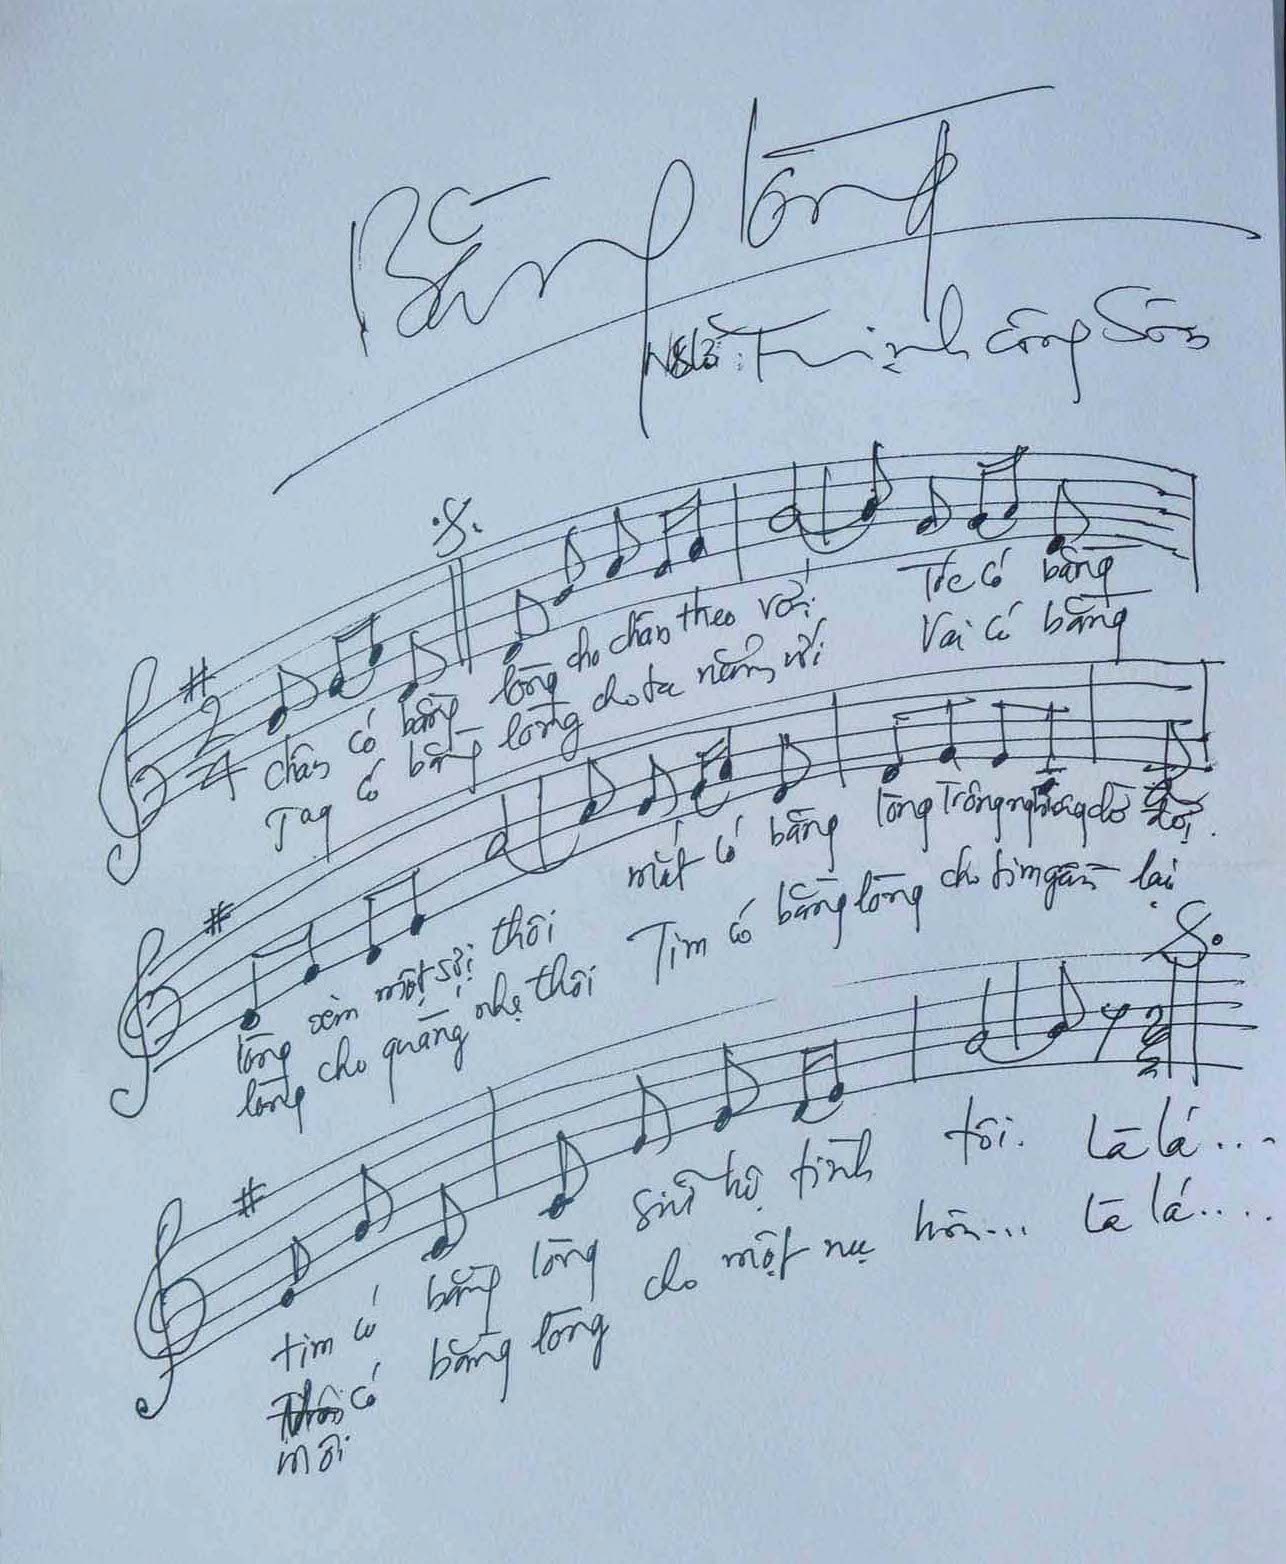 Bằng lòng
Trịnh Công Sơn
2
4
chân có bằng lòng cho chân theo với Tóc có bằng
Tay có bằng lòng cho ta nắm với Vai có bằng
lòng xem một sợi thôi mắt có bằng lòng Trông người đợi
lòng cho quàng nhẹ thôi Tim có bằng lòng cho tim gần lại
tim có bằng lòng giữ hộ tình tôi. Là lá...
có bằng lòng cho một nụ hôn... Là lá....
môi